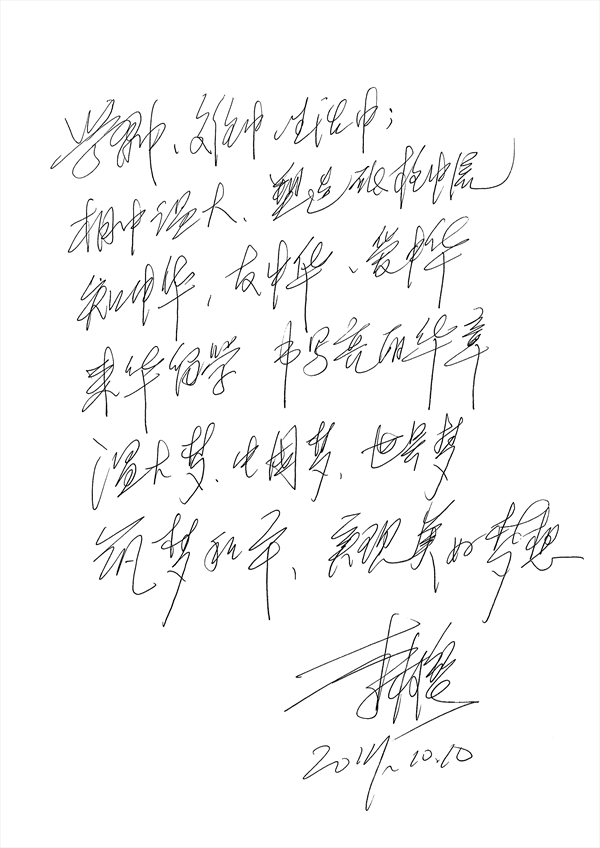 学习中、文化中、生活中；
相中温大、塑造
知中华、友中华、爱中华
来华留学 书写亮丽华章
温大梦、中国梦、世界梦
筑梦和平、实现美好梦想
10.10